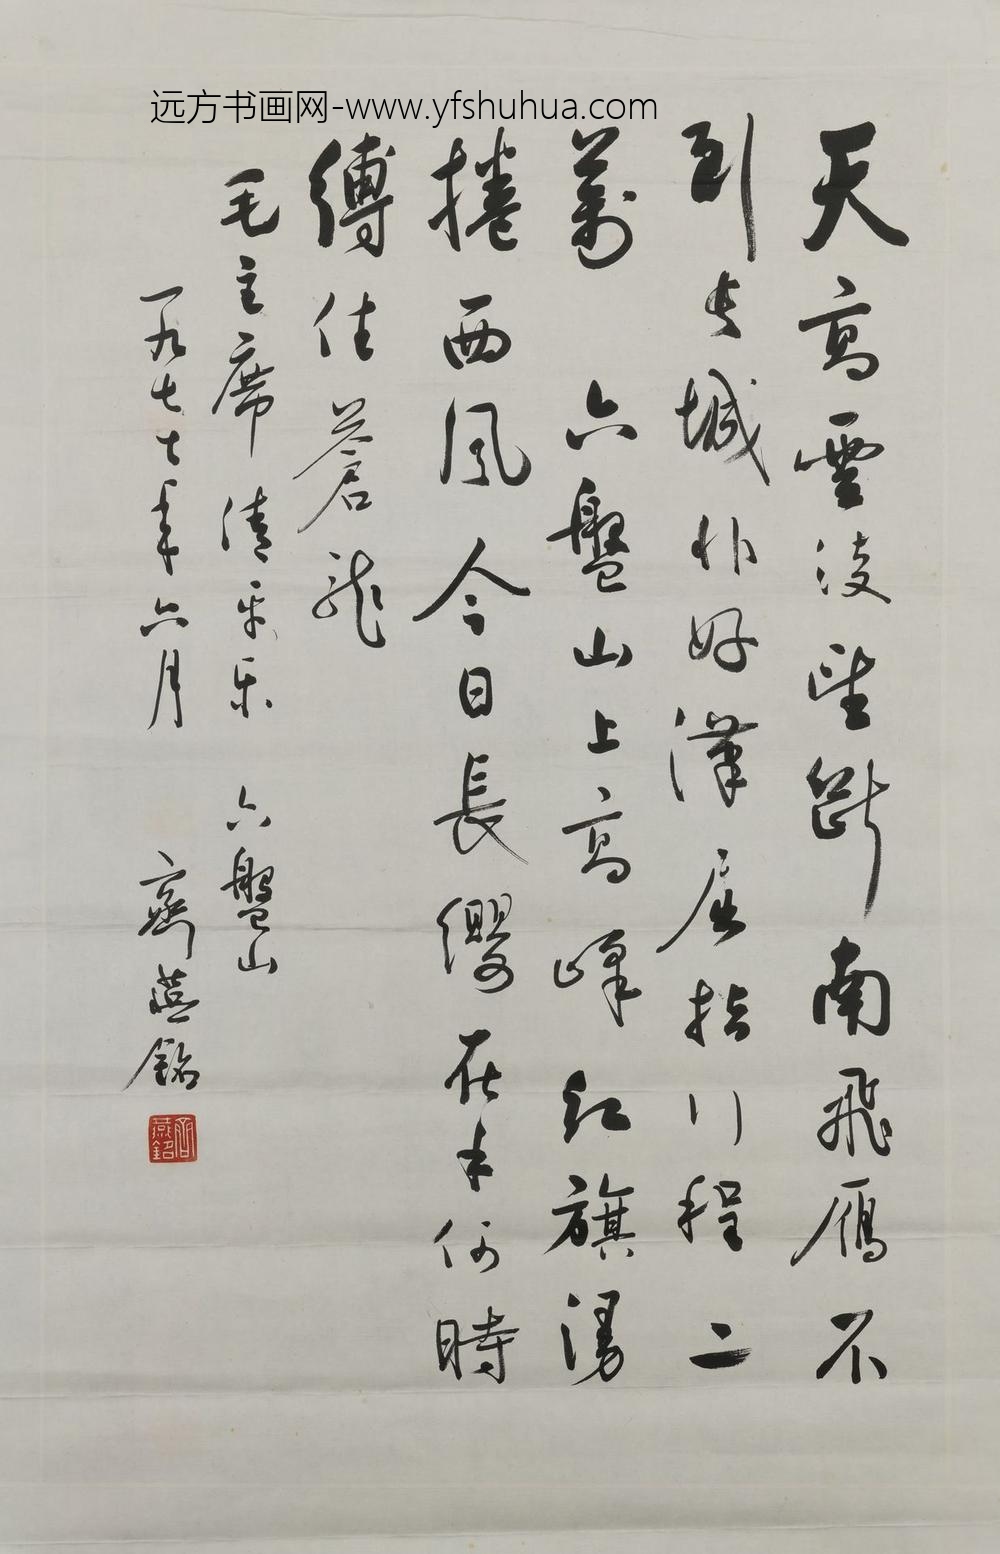 远方书画网-www.yfshuhua.com
天高雲淡望斷南飛雁不
到长城非好漢屈指行程二
萬 六盤山上高峰紅旗漫
捲西風今日長纓在手何時
縛住蒼龍
毛主席 清平乐 六盤山
一九七七年六月 齊燕銘
齊燕銘